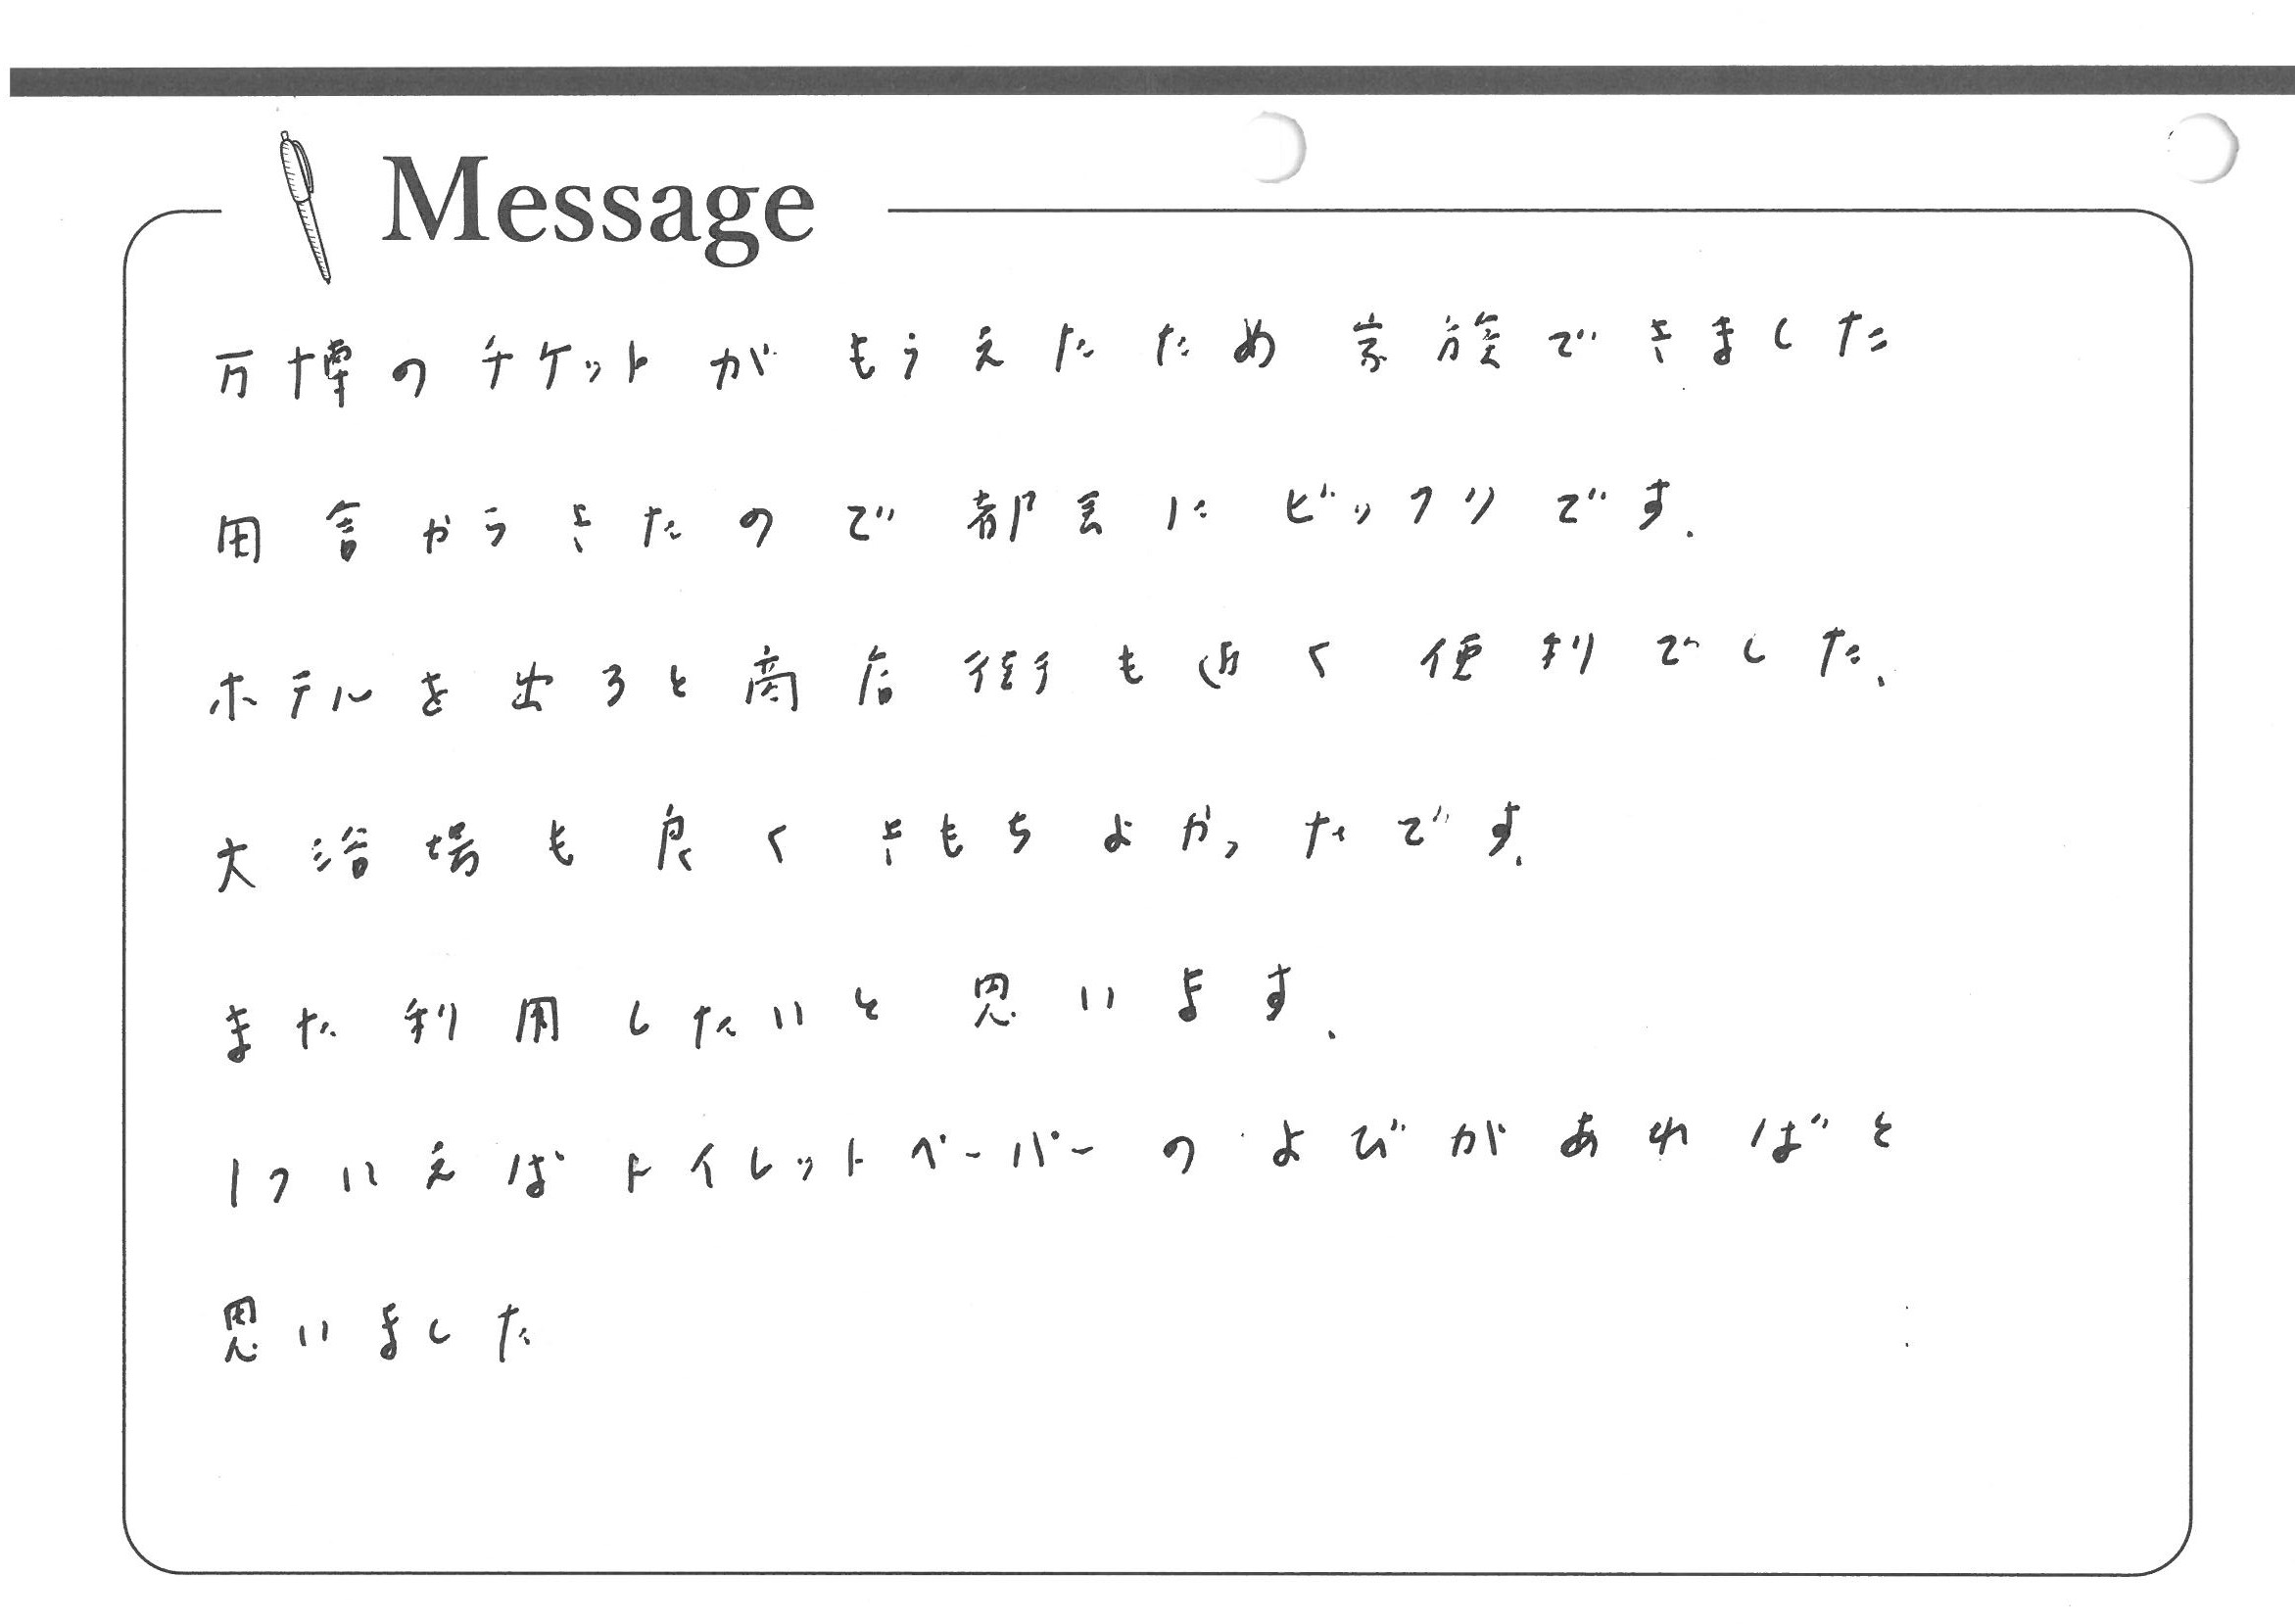 Message
万博のチケットがもらえたため家族できました
田舎からきたので都会にビックリです.
ホテルを出ると商店街も近く便利でした.
大浴場も良くきもちよかったです.
また利用したいと思います.
1ついえばトイレットペーパーのよびがあればと
思いました